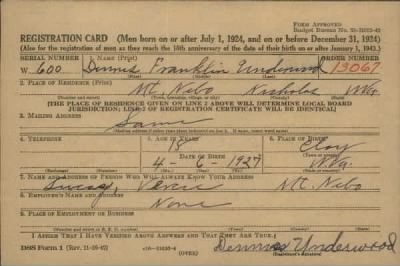 FORM APPROVED
Budget Bureau No.
REGISTRATION CARD (Men born on or after July 1, 1924, and on or before December 31, 1924)
(Also for the registration of men as they reach the 18th anniversary of the date of their birth on or after January 1, 1943.)
SERIAL NUMBER 1. NAME (Print) ORDER NUMBER
W 600 Dennis Franklin Underwood 13067
(First) (Middle) (Last)
2. PLACE OF RESIDENCE (Print)
Mt. Nebo Nicholas W.Va.
[THE PLACE OF RESIDENCE GIVEN ON LINE 2 ABOVE WILL DETERMINE LOCAL BOARD
JURISDICTION; LINE 2 OF REGISTRATION CERTIFICATE WILL BE IDENTICAL]
3. MAILING ADDRESS
Same
[Mailing address if other than place indicated on line 2. If same, insert word same]
4. TELEPHONE 5. AGE IN YEARS 6. PLACE OF BIRTH
18 Clay
DATE OF BIRTH
4-6-1927 W.Va.
7. NAME AND ADDRESS OF PERSON WHO WILL ALWAYS KNOW YOUR ADDRESS
Mt. Nebo
8. EMPLOYER'S NAME AND ADDRESS
None
9. PLACE OF EMPLOYMENT OR BUSINESS
I AFFIRM THAT I HAVE VERIFIED ABOVE ANSWERS AND THAT THEY ARE TRUE.
DSS Form 1 (OVER) Dennis Underwood
(Registrant's signature)